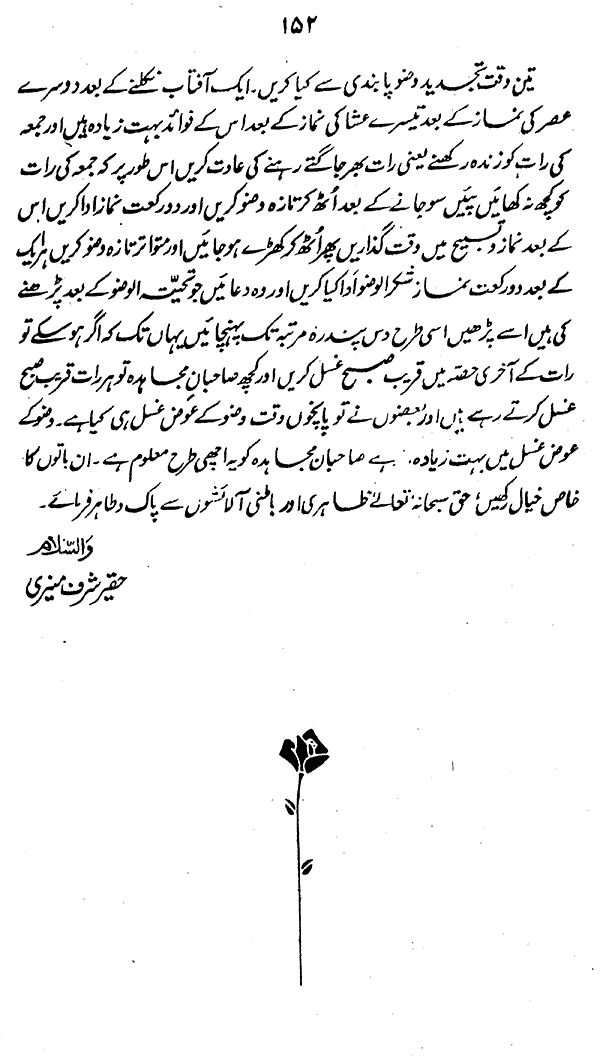 ۱۵۲
تین وقت تجدید وضو پابندی سے کیا کریں۔ ایک آفتاب نکلنے کے بعد دوسرے
عصر کی نماز کے بعد تیسرے عشا کی نماز کے بعد اس کے فوائد بہت زیادہ ہیں اور جمعہ
کی رات کو زندہ رکھنے یعنی رات بھر جاگتے رہنے کی عادت کریں اس طور پر کہ جمعہ کی رات
کو کچھ نہ کھائیں پئیں سو جانے کے بعد اُٹھ کر تازہ وضو کریں اور دو رکعت نماز ادا کریں اس
کے بعد نماز و تسبیح میں وقت گذاریں پھر اُٹھ کر کھڑے ہو جائیں اور متواتر تازہ وضو کریں ہر ایک
کے بعد دو رکعت نماز شکر الوضو اَدا کیا کریں اور وہ دعائیں جو تحیّتہ الوضو کے بعد پڑھنے
کی ہیں اسے پڑھیں اسی طرح دس پندرہ مرتبہ تک پہنچائیں یہاں تک کہ اگر ہو سکے تو
رات کے آخری حصّہ میں قریب صبح غسل کریں اور کچھ صاحبانِ مجاہدہ تو ہر رات قریب صبح
غسل کرتے رہے ہیں اور بعضوں نے تو پانچوں وقت وضو کے عوض غسل ہی کیا ہے۔ وضو کے
عوض غسل میں بہت زیادہ ہے صاحبان مجاہدہ کو یہ اچھی طرح معلوم ہے۔ ان باتوں کا
خاص خیال رکھیں؛ حق سبحانہٗ تعالےٰ ظاہری اور باطنی آلائشوں سے پاک و طاہر فرمائے۔
والسّلام
حقیر شرف منیری